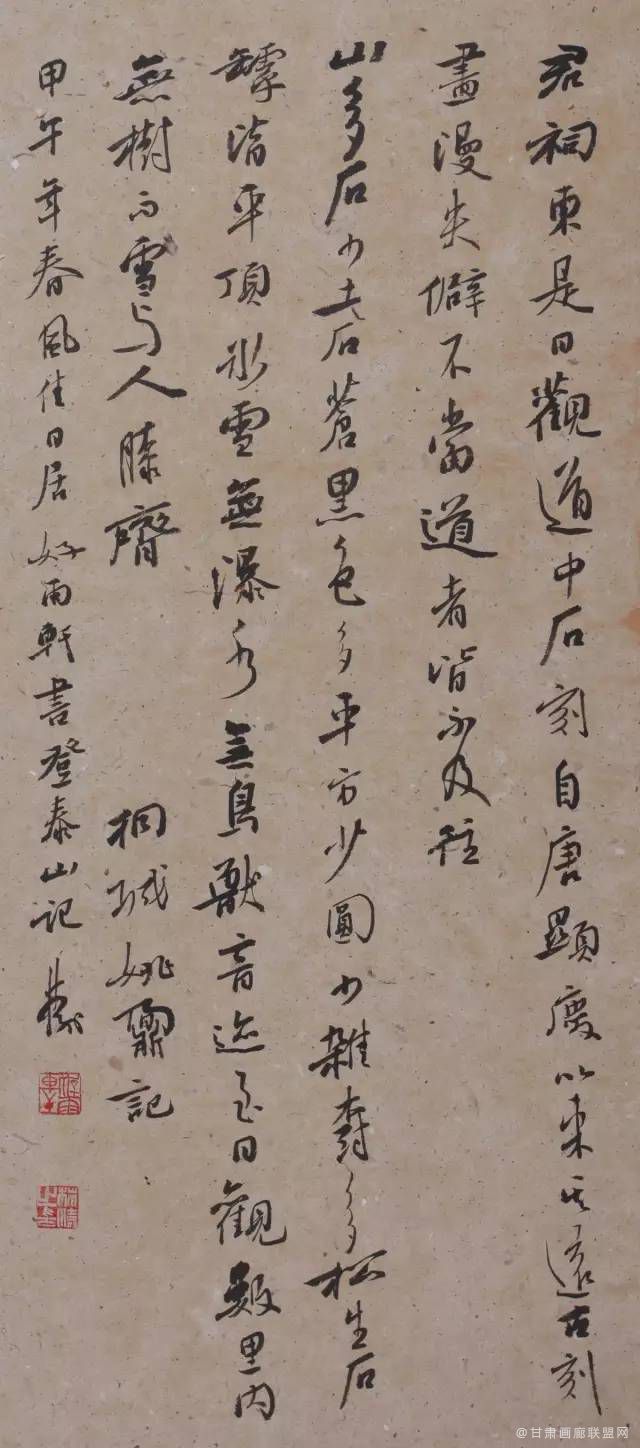 君祠東是日觀道中石刻自唐顯慶以来其遠古刻
盡漫失僻不當道者皆不及往
山多石少土石蒼黑色多平方少圓少雜樹多松生石
罅皆平頂冰雪無瀑水無鳥獸音迹至日觀數里内
無樹而雪与人膝齊
桐城姚鼐記
甲午年春風佳日居好雨軒書登泰山记
@甘肃画廊联盟网